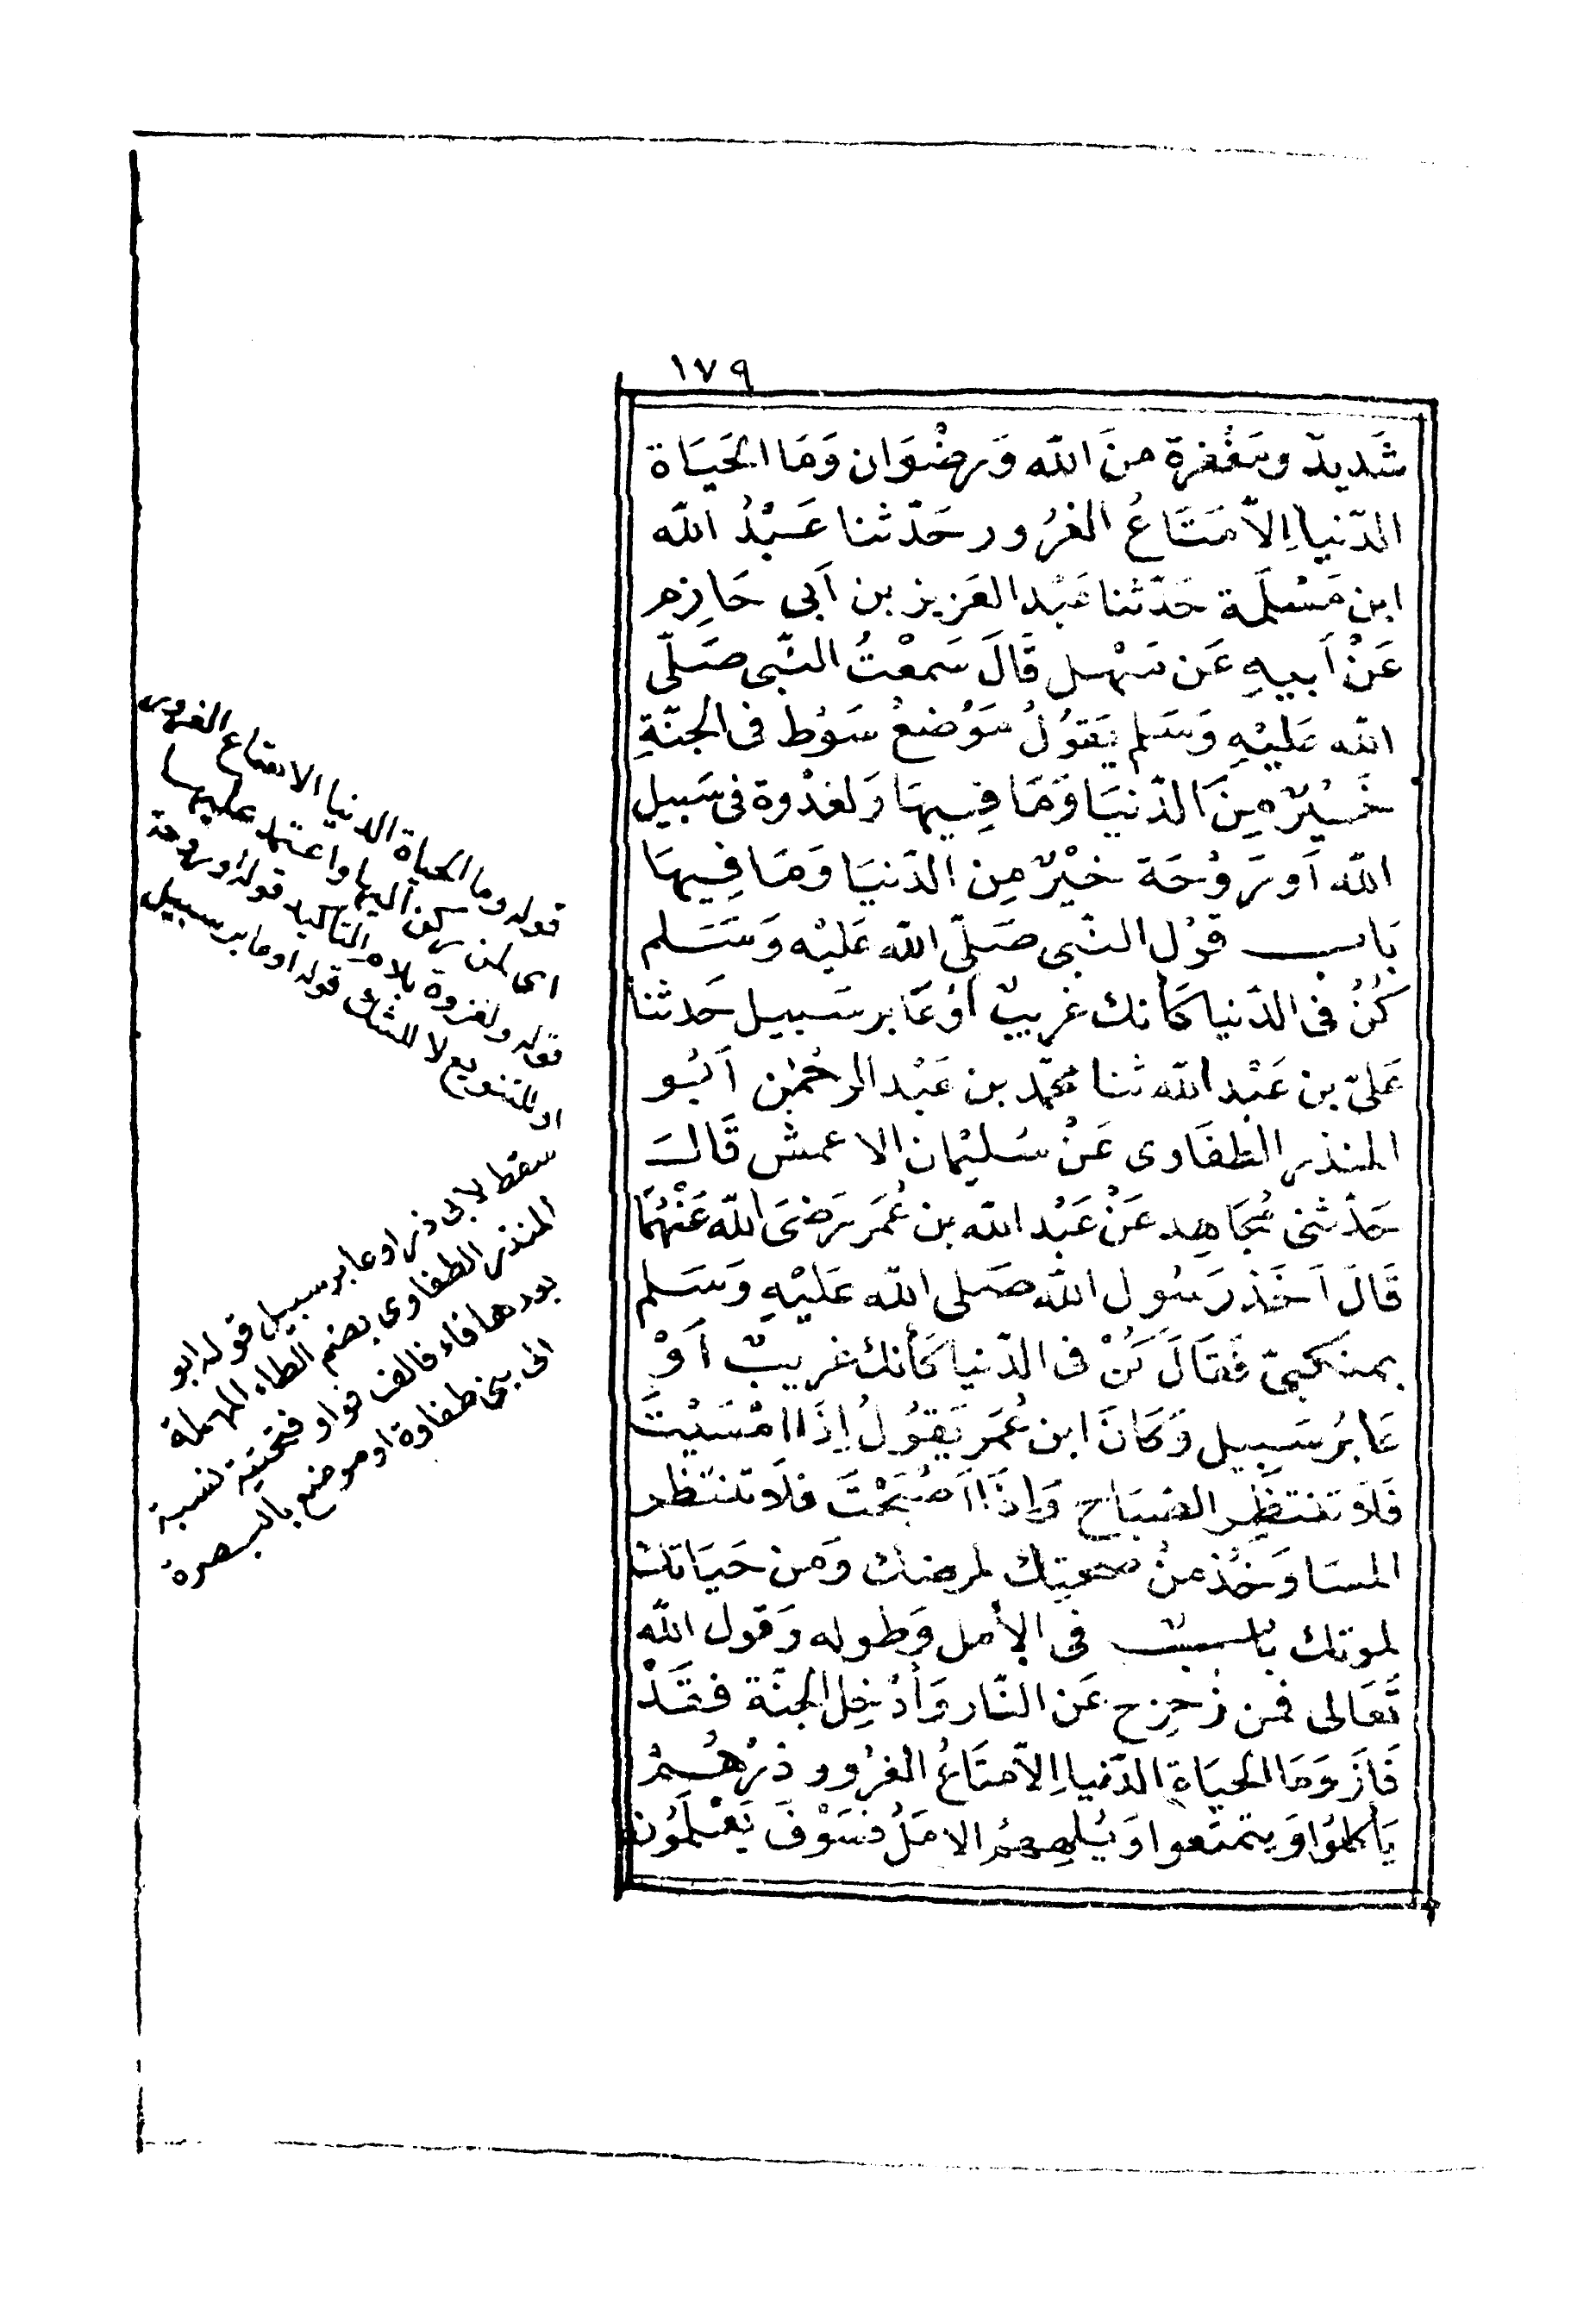 ١٧٩
شَديدٌ ومَغْفرة منَ اللّه وَرضْوَان وَمَا الحَيَاة
الدّنيا إلاّ مَتَاعُ الغرُور حَدّثنا عَبْدُ اللّه
ابن مَسْلَمة حَدّثنا عَبْد العَزيز بن أَبى حَازِم
عَنْ أَبيهِ عَن سَهْل قَالَ سَمعْتُ النّبى صَلّى
اللّه عَليْهِ وَسَلم يَقوُلُ مَوْضعُ سَوْط فى الجنّةِ
خَيْرٌ مِنَ الدّنيَا وَمَا فِيهَا وَلغدْوة فى سَبيل
اللّه أَو رَوْحَة خيْرٌ مِن الدّنيَا وَمَا فِيهَا
بَاب قوْل النّبى صَلّى اللّه عَليْه وَسَلم
كُنْ فى الدّنيا كأنك غريبٌ أوْ عَابر سَبيل حَدثنا
عَلىّ بن عَبْد اللّه ثنا محمّد بن عَبْد الرحْمٰن أَبُو
المنذر الطفَاوى عَنْ سُليْمان الاعمش قَالَ
حَدّثنى مُجَاهِد عَنْ عَبْد اللّه بن عُمَر رَضىَ اللّه عَنْهُمَا
قَالَ أَخَذ رَسُول اللّه صَلى اللّه عَليْهِ وَسَلم
بمنكبىّ فَقَالَ كُنْ فى الدّنيا كأنك غريبٌ أَوْ
عَابرُ سَبيل وَكَانَ ابن عُمَر يَقوُلُ إذَا امْسَيْتَ
فَلَا تنتظِر الصَبَاح وَاذَا أَصْبَحْتَ فلَا تنتظر
المسَا وَخُذ منْ صحتِك لمرضك وَمن حَيَاتك
لموتك بَابٌ فى الأمل وَطوله وَقول اللّه
تَعَالى فمن زُحزِح عَن النّار وَأُدْخِل الجنّة فقَدْ
فَازَ وَمَا الحيَاة الدّنيا إلاّ متَاعُ الغرُور ذرْهُمْ
يَأكلوُا وَيتمتعوا وَيُلههمُ الامَلُ فسَوْفَ يَعْلَمُون
قوله وما الحياة الدنيا الا متاع الغرور
اى لمن ركن اليها واعتمد عليها
قوله ولغدوة بلام التاكيد قوله او روحة
او للتنويع لا للشك قوله او عابر سبيل
سقط لابى ذر او عابر سبيل قوله ابو
المنذر الطفاوى بضم الطاء المهملة
بعدها فاء فالف فواو فتحتية نسبة
الى بنى طفاوة او موضع بالبصرة